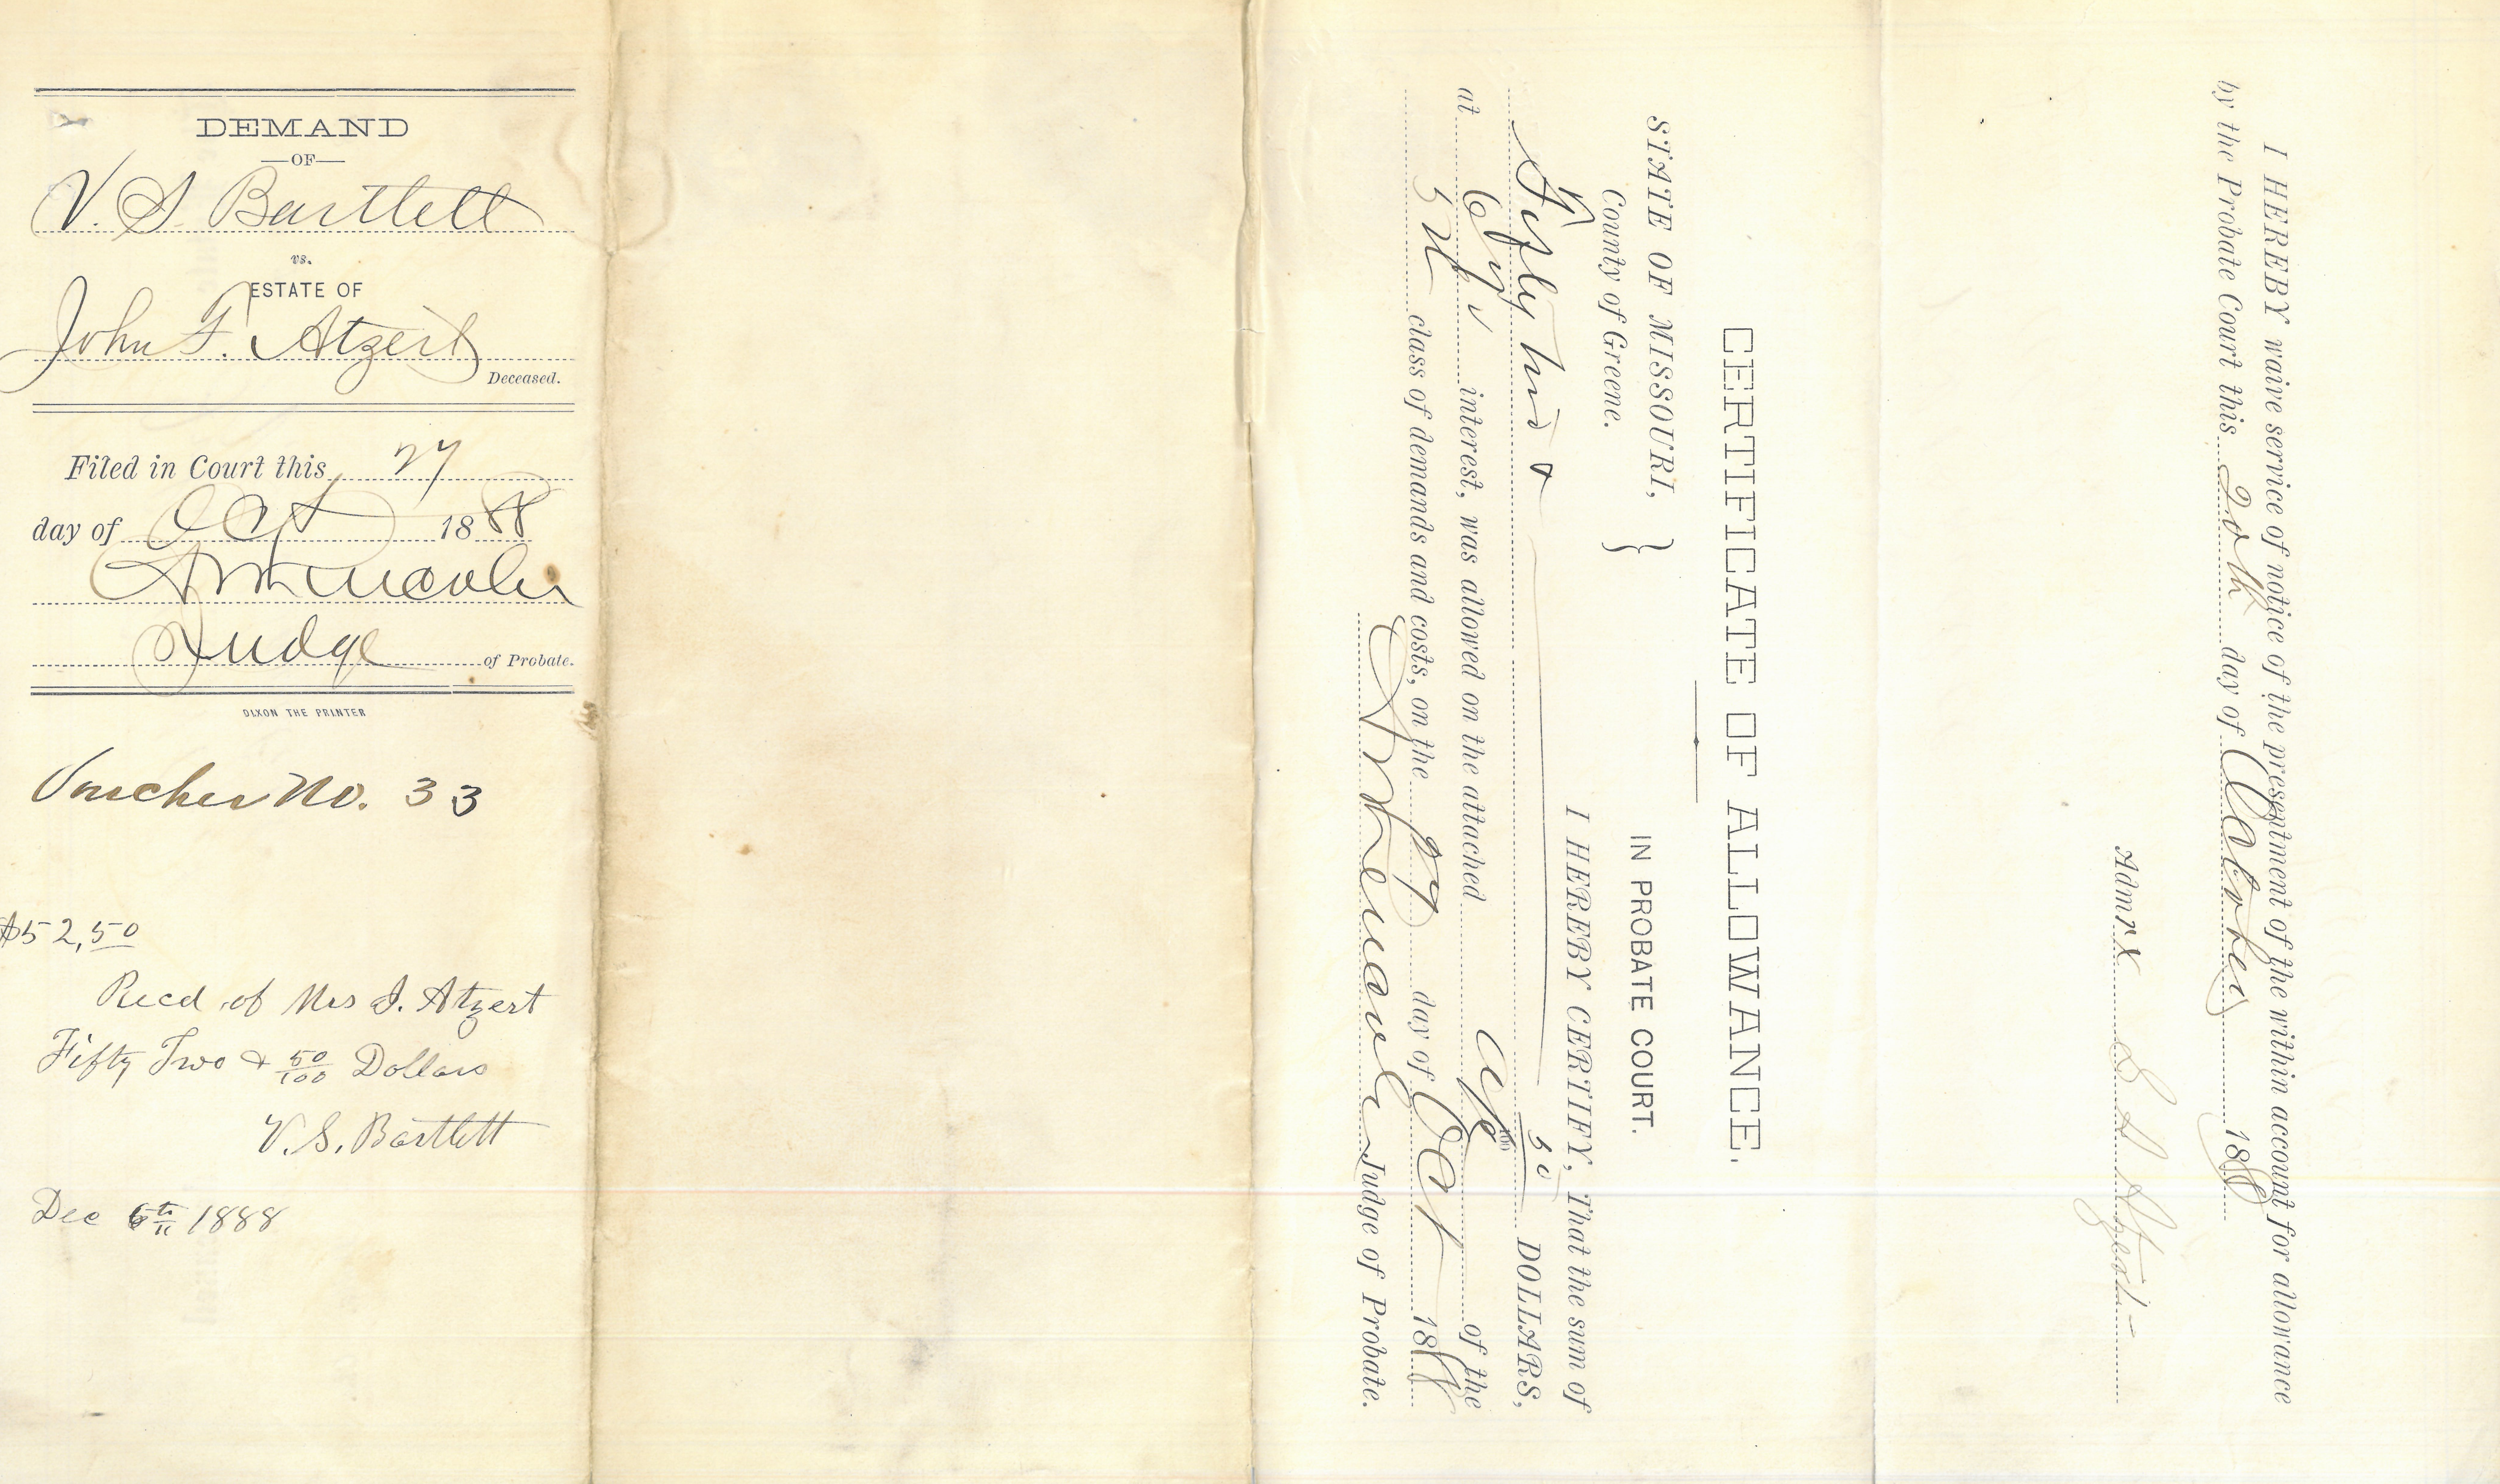 DEMAND
—OF—
V. S. Bartlett
vs.
ESTATE OF
John F. Atzert
Deceased.
Filed in Court this 27
day of Oct 1888
Judge of Probate.
DIXON THE PRINTER
Voucher No. 33
$52,50
Recd of Mrs S. Atzert
Fifty Two & 50/100 Dollars
V. S. Bartlett
Dec 6th 1888
CERTIFICATE OF ALLOWANCE.
STATE OF MISSOURI, }
County of Greene.
IN PROBATE COURT.
I HEREBY CERTIFY, That the sum of
Fifty two & 50/100 DOLLARS,
at 6 % interest, was allowed on the attached of the
5th class of demands and costs, on the 27 day of Oct 1888
Judge of Probate.
I HEREBY waive service of notice of the presentment of the within account for allowance
by the Probate Court this 20th day of October 1888
Admrx S. A. Atzert